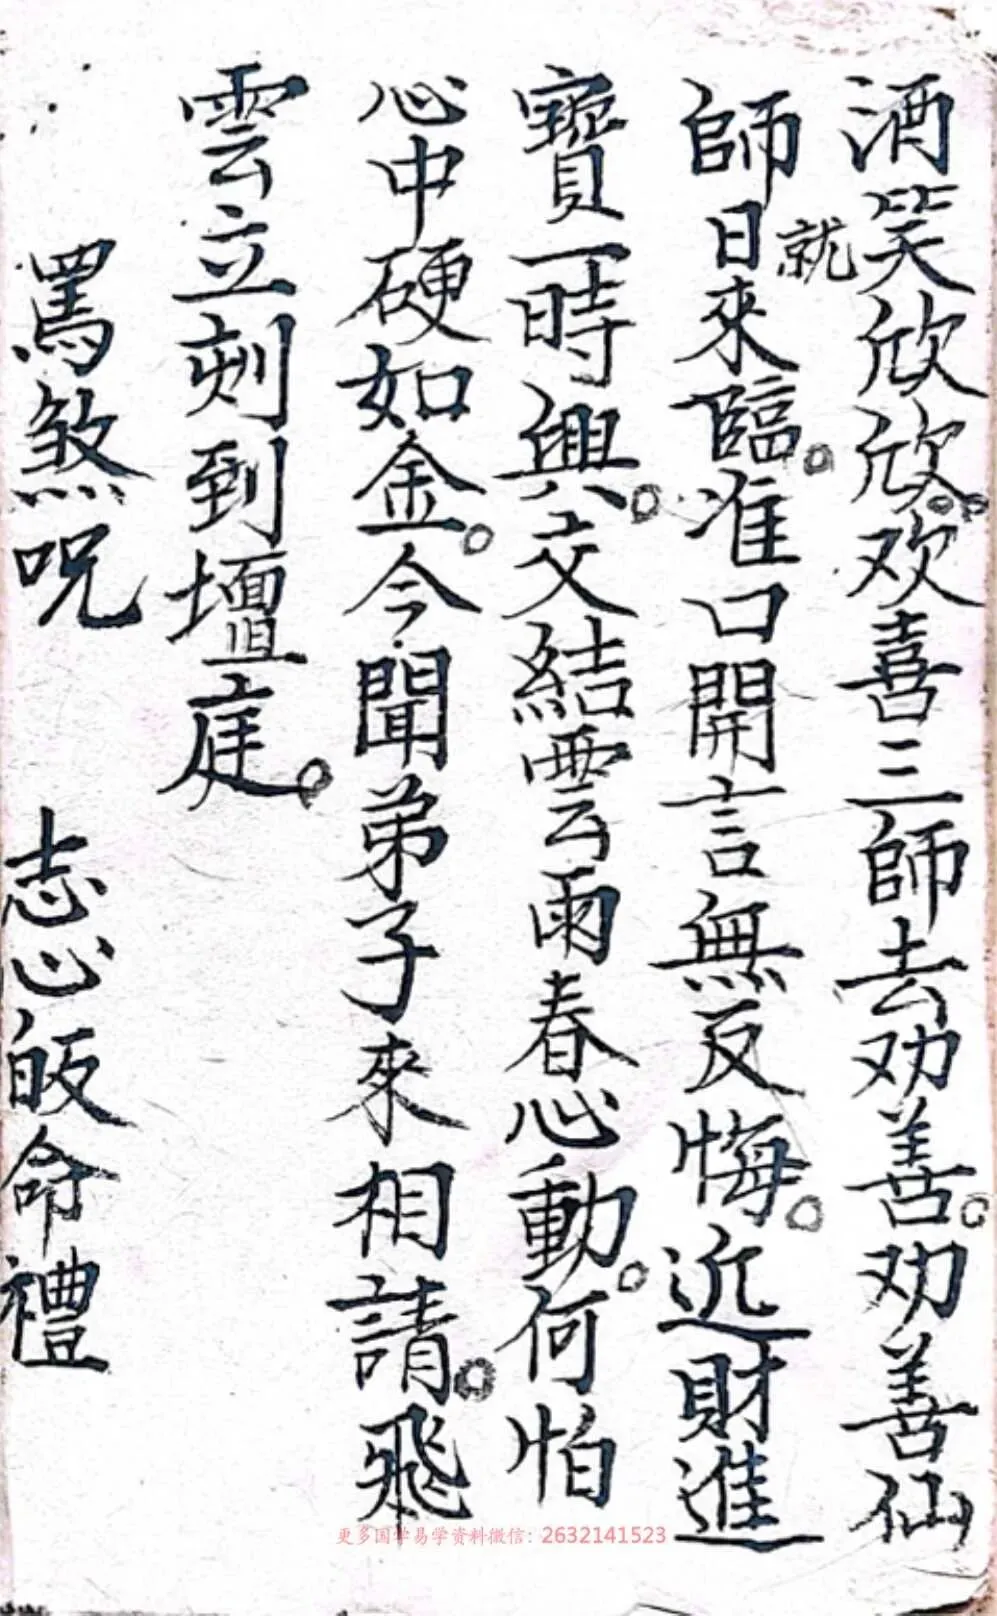 酒笑欣欣。欢喜三師去劝善。劝善仙
師就日來臨。准口開言無反悔。近財進
寳一時興。交結雲雨春心動。何怕
心中硬如金。今聞弟子來相請。飛
雲立刻到壇庭。
罵煞呪 志心皈命禮
更多国学易学资料微信：2632141523